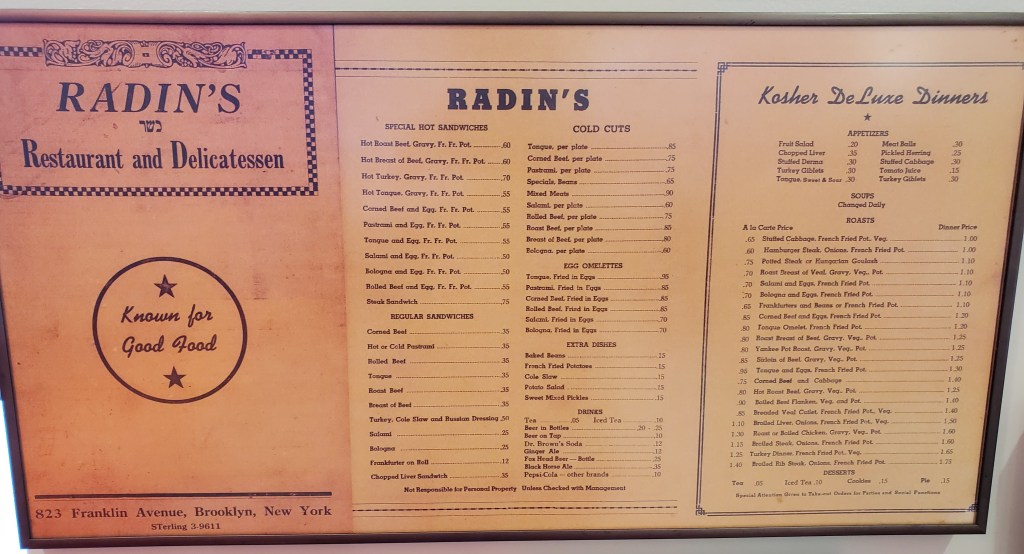 RADIN'S
כשר
Restaurant and Delicatessen
Known for
Good Food
823 Franklin Avenue, Brooklyn, New York
STerling 3-9611
RADIN'S
SPECIAL HOT SANDWICHES
Hot Roast Beef, Gravy, Fr. Fr. Pot. .60
Hot Breast of Beef, Gravy, Fr. Fr. Pot. .60
Hot Turkey, Gravy, Fr. Fr. Pot. .70
Hot Tongue, Gravy, Fr. Fr. Pot. .55
Corned Beef and Egg, Fr. Fr. Pot. .55
Pastrami and Egg, Fr. Fr. Pot. .55
Tongue and Egg, Fr. Fr. Pot. .55
Salami and Egg, Fr. Fr. Pot. .50
Bologna and Egg, Fr. Fr. Pot. .50
Rolled Beef and Egg, Fr. Fr. Pot. .55
Steak Sandwich .75
REGULAR SANDWICHES
Corned Beef .35
Hot or Cold Pastrami .35
Rolled Beef .35
Tongue .35
Roast Beef .35
Breast of Beef .35
Turkey, Cole Slaw and Russian Dressing .50
Salami .25
Bologna .25
Frankfurter on Roll .12
Chopped Liver Sandwich .35
COLD CUTS
Tongue, per plate .85
Corned Beef, per plate .75
Pastrami, per plate .75
Specials, Beans .65
Mixed Meats .90
Salami, per plate .60
Rolled Beef, per plate .75
Roast Beef, per plate .85
Breast of Beef, per plate .80
Bologna, per plate .60
EGG OMELETTES
Tongue, Fried in Eggs .95
Pastrami, Fried in Eggs .85
Corned Beef, Fried in Eggs .85
Rolled Beef, Fried in Eggs .85
Salami, Fried in Eggs .70
Bologna, Fried in Eggs .70
EXTRA DISHES
Baked Beans .15
French Fried Potatoes .15
Cole Slaw .15
Potato Salad .15
Sweet Mixed Pickles .15
DRINKS
Tea .05 Iced Tea .10
Beer in Bottles .20 - .25
Beer on Tap .10
Dr. Brown's Soda .12
Ginger Ale .12
Fox Head Beer — Bottle .25
Black Horse Ale .35
Pepsi Cola — other brands .10
Not Responsible for Personal Property Unless Checked with Management
Kosher DeLuxe Dinners
APPETIZERS
Fruit Salad .20 Meat Balls .30
Chopped Liver .35 Pickled Herring .25
Stuffed Derma .30 Stuffed Cabbage .30
Turkey Giblets .30 Tomato Juice .15
Tongue, Sweet & Sour .30 Turkey Giblets .30
SOUPS
Changed Daily
ROASTS
A la Carte Price Dinner Price
.65 Stuffed Cabbage, French Fried Pot., Veg. 1.00
.60 Hamburger Steak, Onions, French Fried Pot. 1.00
.75 Potted Steak or Hungarian Goulash 1.10
.70 Roast Breast of Veal, Gravy, Veg., Pot. 1.10
.70 Salami and Eggs, French Fried Pot. 1.10
.70 Bologna and Eggs, French Fried Pot. 1.10
.65 Frankfurters and Beans or French Fried Pot. 1.10
.85 Corned Beef and Eggs, French Fried Pot. 1.20
.80 Tongue Omelet, French Fried Pot. 1.20
.80 Roast Breast of Beef, Gravy, Veg., Pot. 1.25
.80 Yankee Pot Roast, Gravy, Veg., Pot. 1.25
.85 Sirloin of Beef, Gravy, Veg., Pot. 1.25
.95 Tongue and Eggs, French Fried Pot. 1.30
.75 Corned Beef and Cabbage
.80 Hot Roast Beef, Gravy, Veg., Pot. 1.25
.90 Boiled Beef Flanken, Veg. and Pot. 1.40
.85 Breaded Veal Cutlet, French Fried Pot., Veg. 1.40
1.10 Broiled Liver, Onions, French Fried Pot., Veg. 1.50
1.30 Roast or Boiled Chicken, Gravy, Veg., Pot. 1.60
1.15 Broiled Steak, Onions, French Fried Pot. 1.60
1.25 Turkey Dinner, French Fried Pot., Veg. 1.65
1.40 Broiled Rib Steak, Onions, French Fried Pot. 1.75
DESSERTS
Tea .05 Iced Tea .10 Cookies .15 Pie .15
Special Attention Given to Take-out Orders for Parties and Social Functions